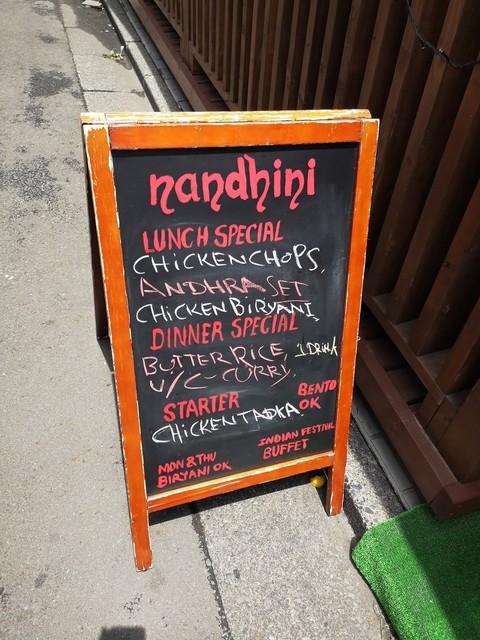 nandhini
LUNCH SPECIAL
CHICKEN CHOPS,
ANDHRA SET
CHICKEN BIRYANI,
DINNER SPECIAL
BUTTER RICE, 1 DRINK
V/C CURRY,
STARTER
BENTO
OK
CHICKEN TADKA
MON & THU
BIRYANI OK
INDIAN FESTIVAL
BUFFET